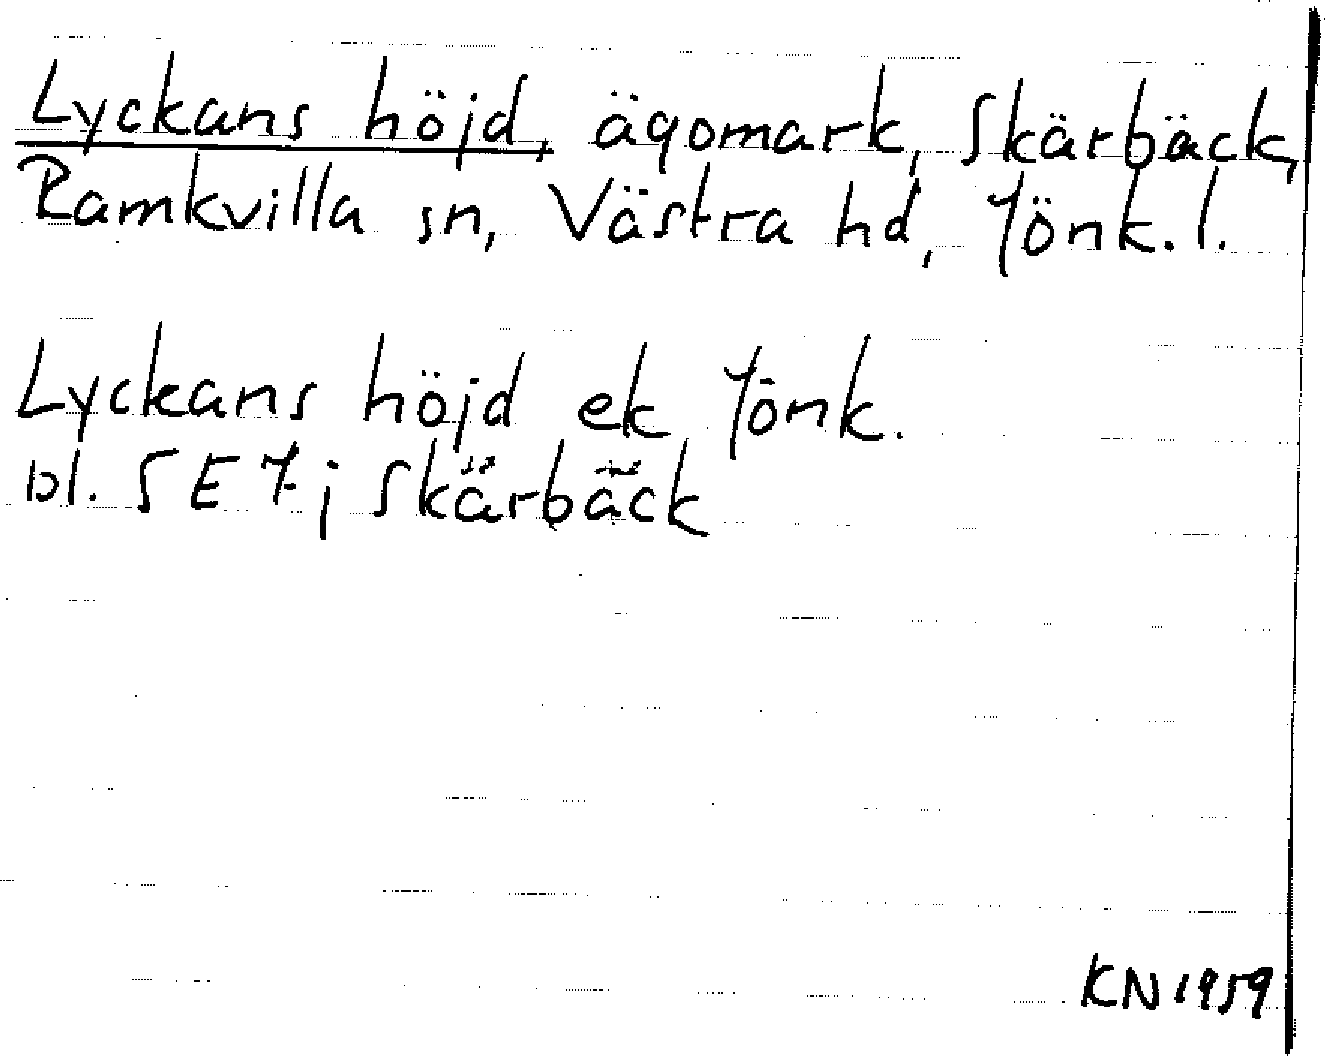 Lyckans höjd, ägomark, Skärbäck,
Ramkvilla sn, Västra hd, Jönk. l.
Lyckans höjd ek Jönk.
bl. 5 E 7; Skärbäck
KN 1959